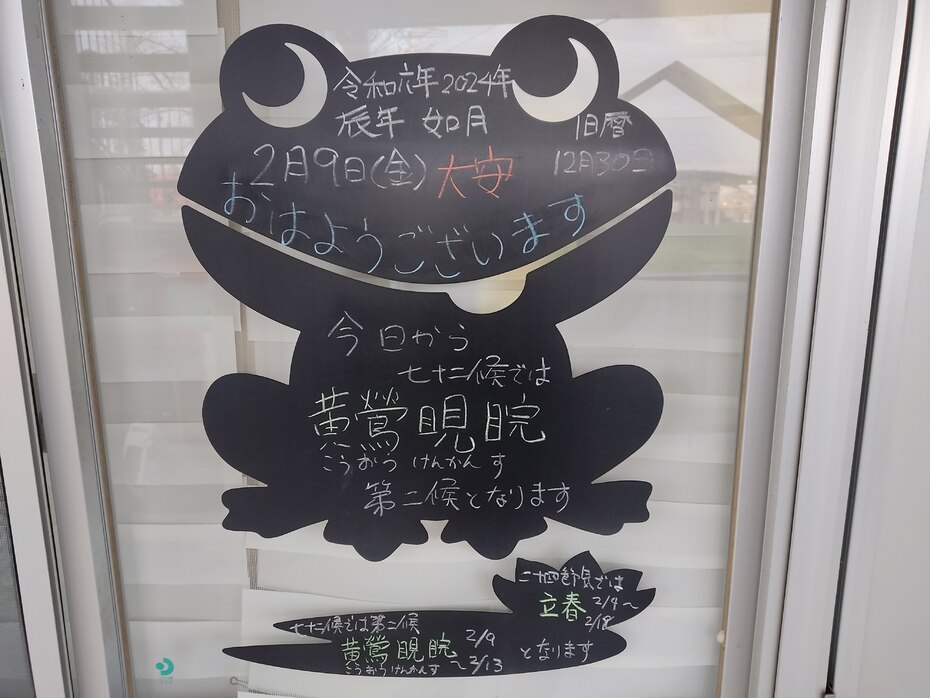 令和六年2024年
辰年 如月
旧暦
2月9日(金) 大安
12月30日
おはようございます
今日から
七十二候では
黄鶯睍睆
こうおう けんかん す
第二候となります
二十四節気では
立春 2/4～
2/18
七十二候では第二候
黄鶯睍睆
こうおうけんかんす
2/9
～2/13
となります